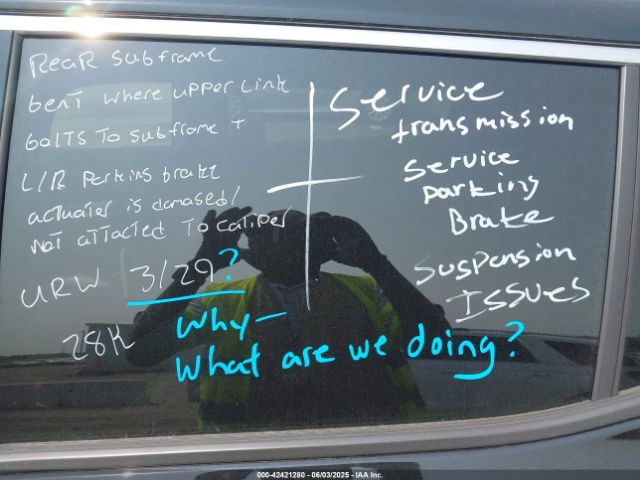 Rear subframe
bent where upper link
bolts to subframe +
L/R Perkins brake
actuater is damased/
not attacted to caliper
URW 3/29?
28K
Service
transmission
Service
parking
Brake
Suspension
Issues
Why-
What are we doing?
000-42421280 - 06/03/2025 - IAA Inc.